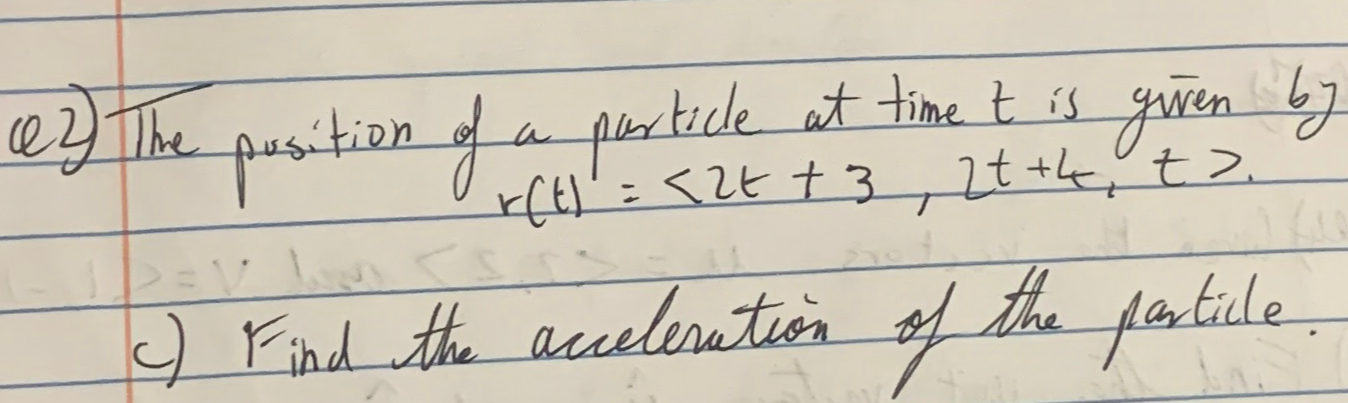 Q2) The position of a particle at time t is given by
r(t) = <2t + 3, 2t+4, t>.
c) Find the acceleration of the particle.